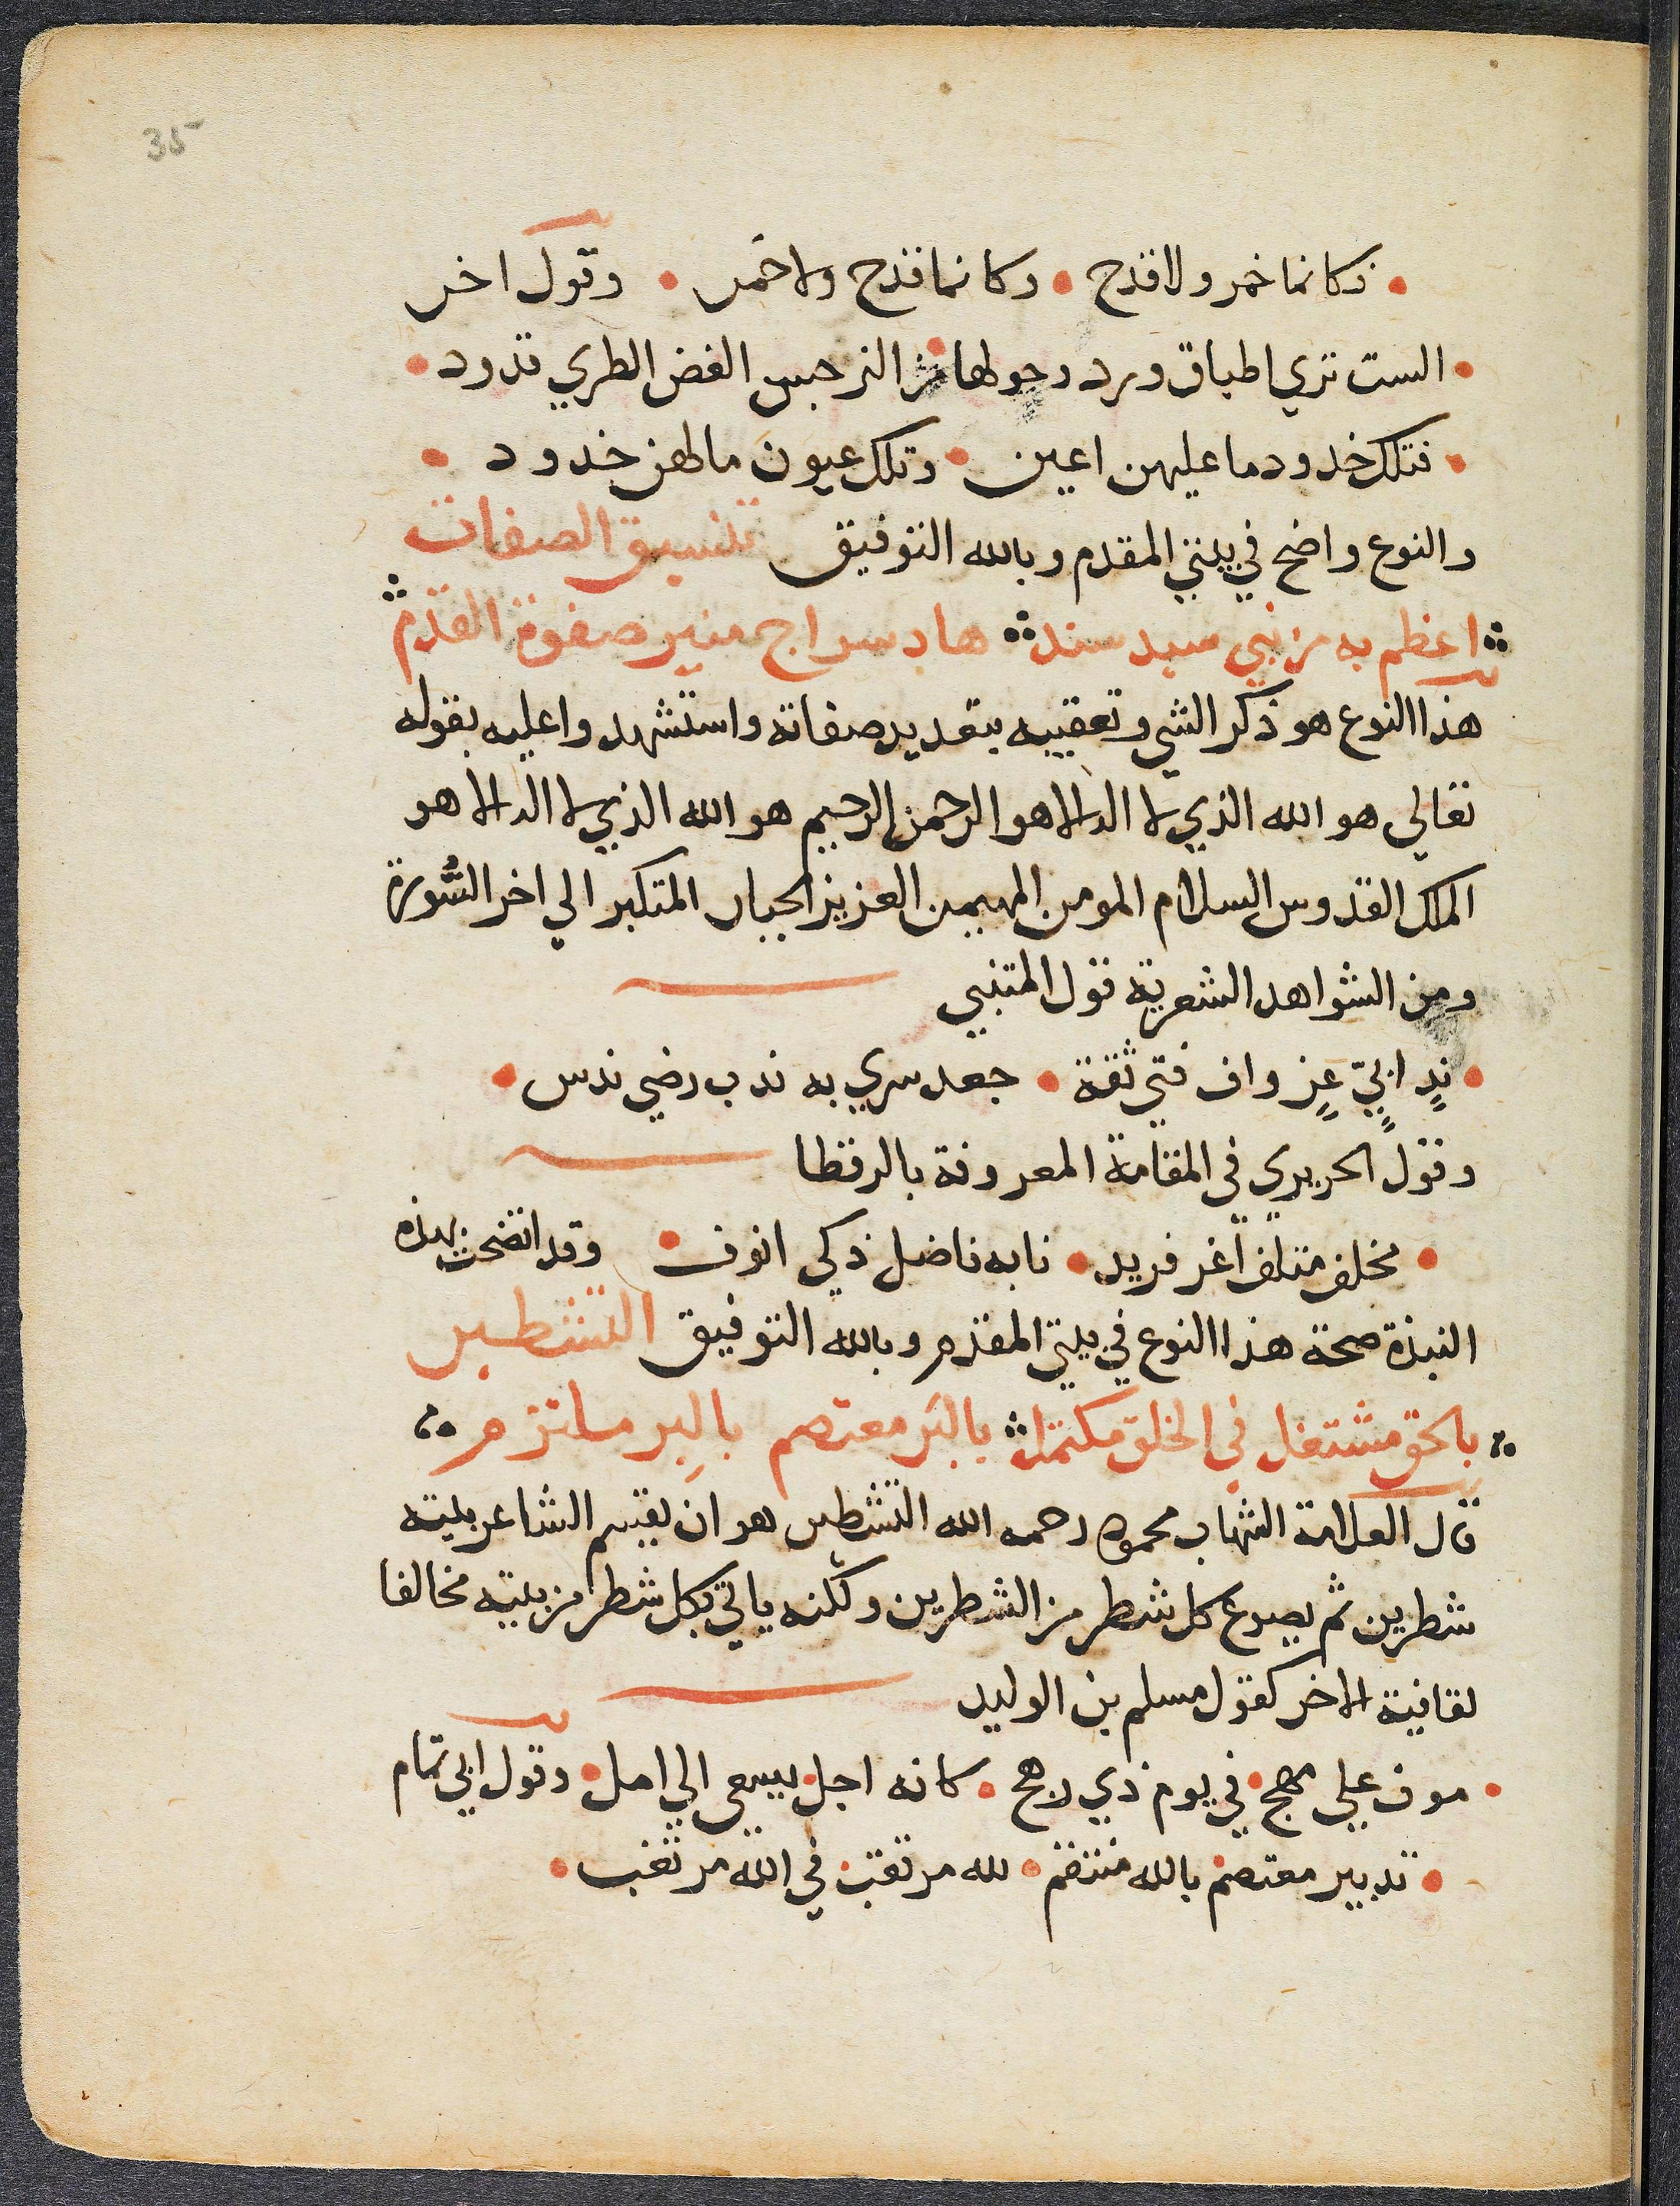 35
• فكانما خمر ولا قدح • وكانما قدح ولا خمر • وقول اخر
• الست تري اطباق ورد وحولها • من النرجس الغض الطري قدود •
• فتلك خدود ما عليهن اعين • وتلك عيون ما لهن خدود •
والنوع واضح في بيتي المقدم وبالله التوفيق تنسيق الصفات
اعظم به من نبي سيد سند هاد سراج منير صفوة القدم
هذا النوع هو ذكر الشي وتعقيبه بتعديد صفاته واستشهدوا عليه بقوله
تعالي هو الله الذي لا اله الا هو الرحمن الرحيم هو الله الذي لا اله الا هو
الملك القدوس السلام المومن المهيمن العزيز الجبار المتكبر الي اخر السُّورة
ومن الشواهد الشعرية قول المتنبي
• ندٍ ابيٍّ غرٍ واف فتي ثقة • جعد سري به ندب رضي ندس •
وقول الحريري في المقامة المعروفة بالرقطا
• مخلف متلف اغر فريد • نابه فاضل ذكي انوف • وقد اتضحت بهذه
النبذة صحة هذا النوع في بيتي المقدم وبالله التوفيق التشطير
بالحق مشتغل في الخلق مكتمل بالبَر معتصم بالبِر ملتزم
قال العلامة الشهاب محمود رحمه الله التشطير هو ان يقسم الشاعر بيته
شطرين ثم يصرع كل شطر من الشطرين ولكنه ياتي بكل شطر من بيته مخالفا
لقافية الاخر كقول مسلم بن الوليد
• موف علي مهج • في يوم ذي رهج • كانه اجل • يسعي الي امل • وقول ابي تمام
• تدبير معتصم • بالله منتقم • لله مرتقب • في الله مرتغب •